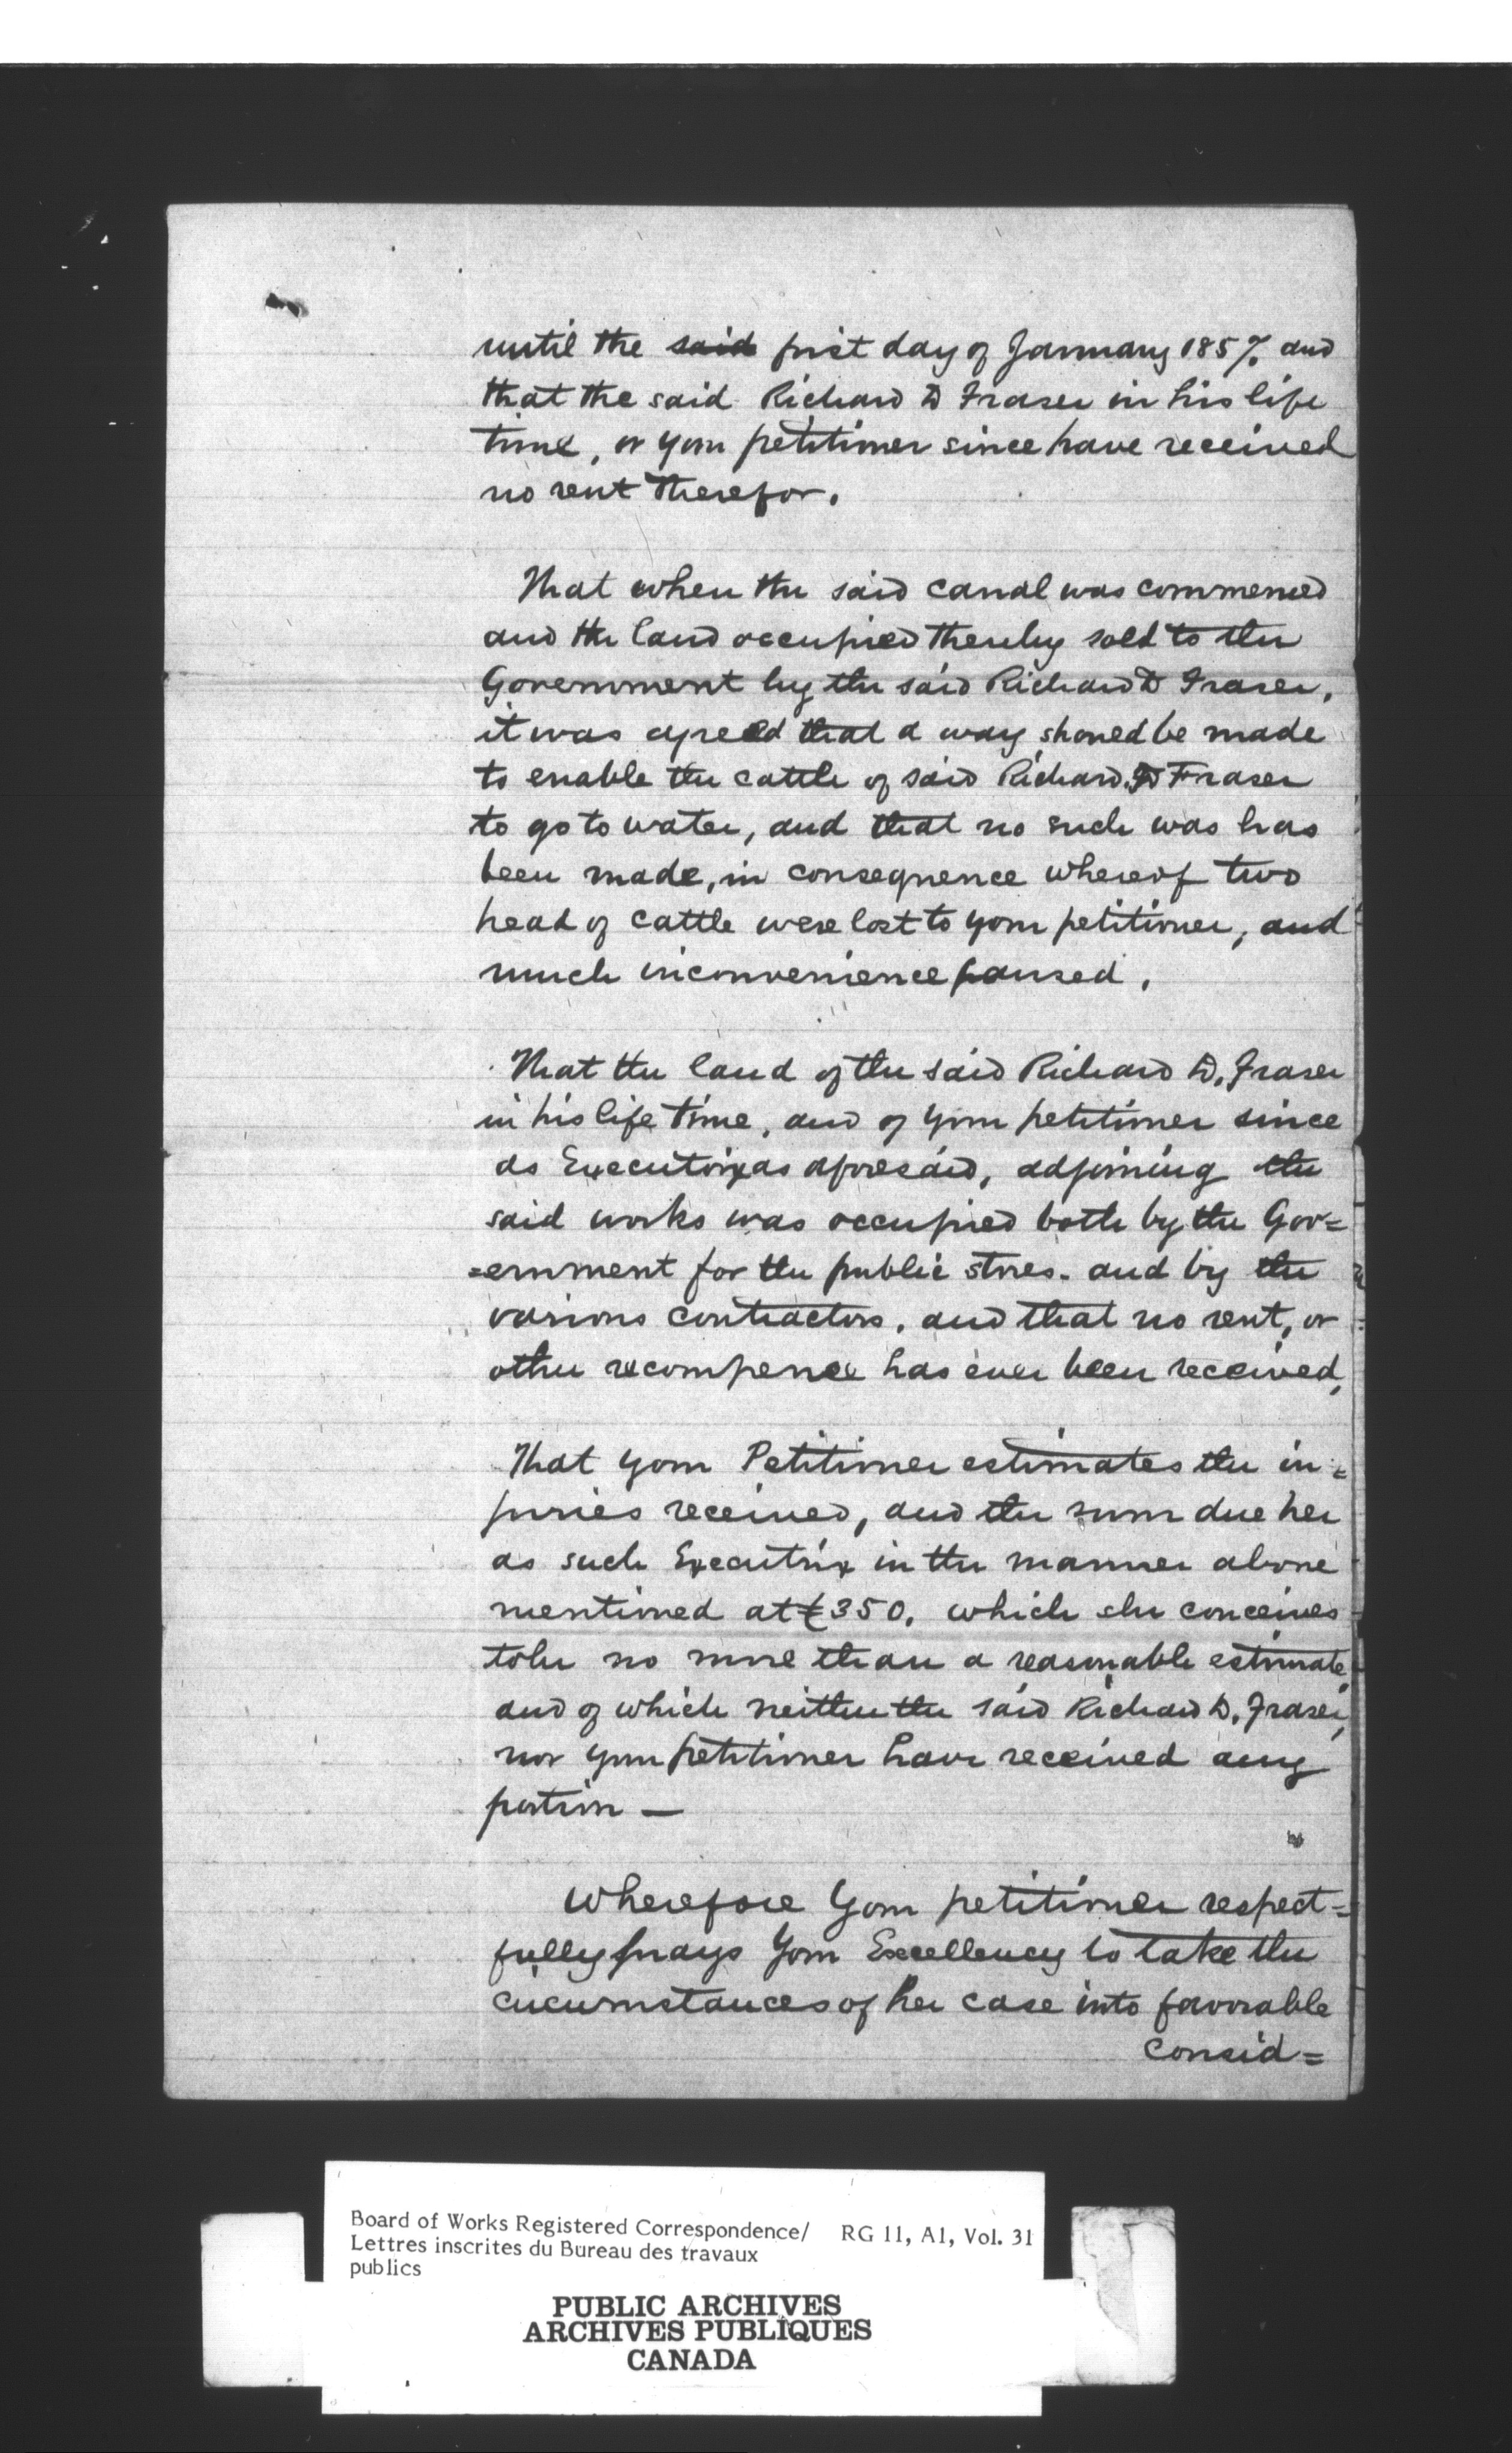 until the said first day of January 1857. and
that the said Richard D Fraser in his life
time, or your petitioner since have received
no rent therefor.
That when the said canal was commenced
and the land occupied thereby sold to the
Government by the said Richard D Fraser,
it was agreed that a way should be made
to enable the cattle of said Richard D Fraser
to go to water, and that no such was has
been made, in consequence whereof two
head of cattle were lost to your petitioner, and
much inconvenience caused.
That the land of the said Richard D. Fraser
in his life time, and of your petitioner since
as Executrix as aforesaid, adjoining the
said works was occupied both by the Gov=
=ernment for the public stores. and by the
various contractors. and that no rent, or
other recompence has ever been received,
That your Petitioner estimates the in=
juries received, and the sum due her
as such Executrix in the manner above
mentioned at £350. which she conceives
to be no more than a reasonable estimate,
and of which neither the said Richard D. Fraser,
nor your petitioner have received any
portion —
Wherefore Your petitioner respect=
fully prays Your Excellency to take the
circumstances of her case into favorable
consid=
Board of Works Registered Correspondence/ RG 11, A1, Vol. 31
Lettres inscrites du Bureau des travaux
publics
PUBLIC ARCHIVES
ARCHIVES PUBLIQUES
CANADA